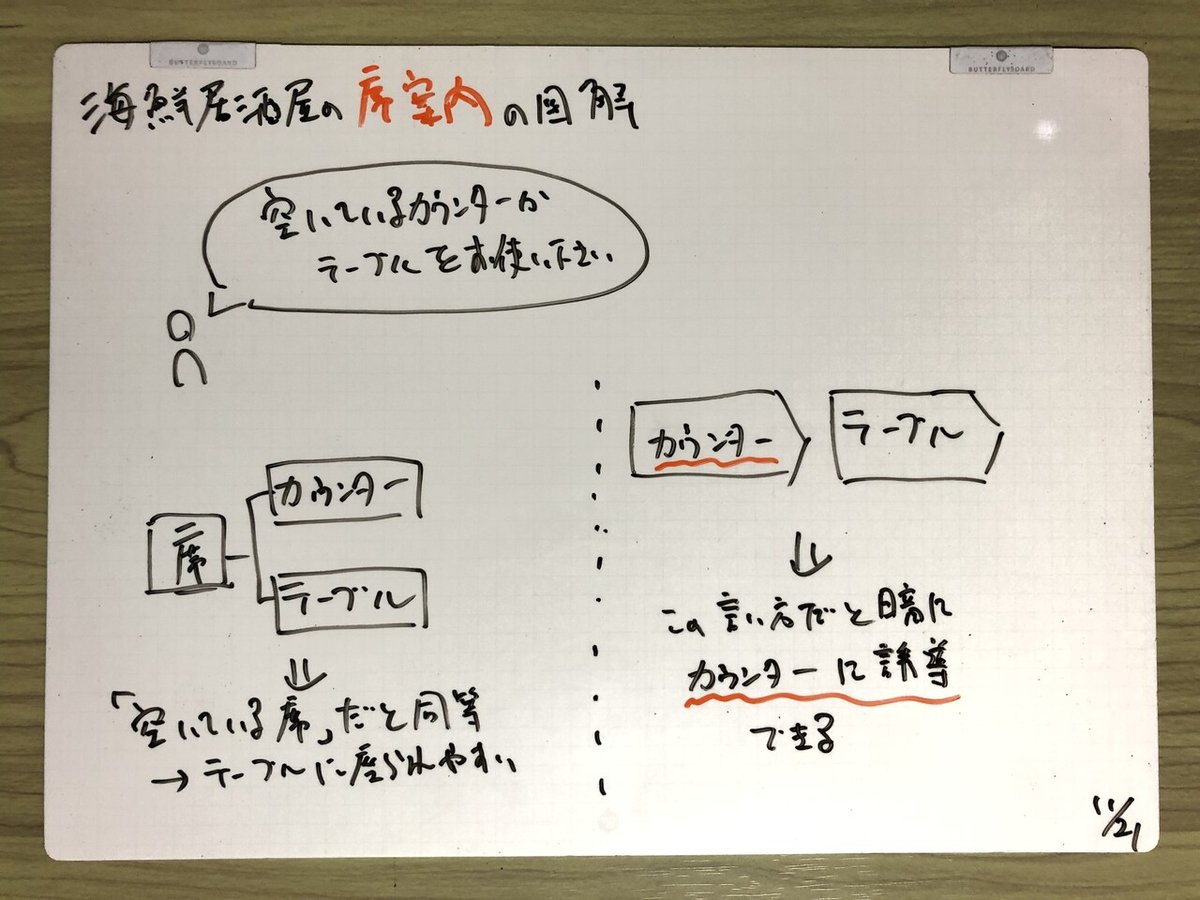 BUTTERFLYBOARD
BUTTERFLYBOARD
海鮮居酒屋の席案内の図解
空いているカウンターか
テーブルをお使い下さい
カウンター
テーブル
席
カウンター
テーブル
「空いている席」だと同等
→テーブルに座られやすい
この言い方だと暗に
カウンターに誘導
できる
11/21